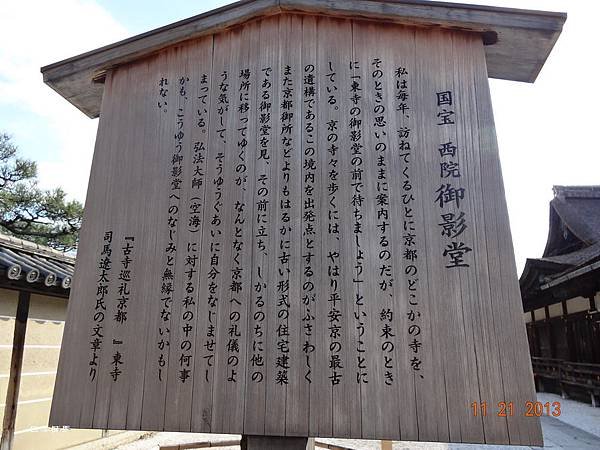 国宝 西院御影堂
私は毎年、訪ねてくるひとに京都のどこかの寺を、
そのときの思いのままに案内するのだが、約束のとき
に「東寺の御影堂の前で待ちましょう」ということに
している。京の寺々を歩くには、やはり平安京の最古
の遺構であるこの境内を出発点とするのがふさわしく
また京都御所などよりもはるかに古い形式の住宅建築
である御影堂を見、その前に立ち、しかるのちに他の
場所に移ってゆくのが、なんとなく京都への礼儀のよ
うな気がして、そうゆうぐあいに自分をなじませてし
まっている。弘法大師(空海)に対する私の中の何事
かも、こうゆう御影堂へのなじみと無縁でないかもし
れない。
『古寺巡礼京都 』東寺
司馬遼太郎氏の文章より
11 21 2013